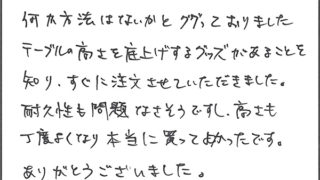 何か方法はないかとググっておりました
テーブルの高さを底上げするグッズがあることを
知り、すぐに注文させていただきました。
耐久性も問題なさそうですし、高さも
丁度よくなり本当に買ってよかったです。
ありがとうございました。